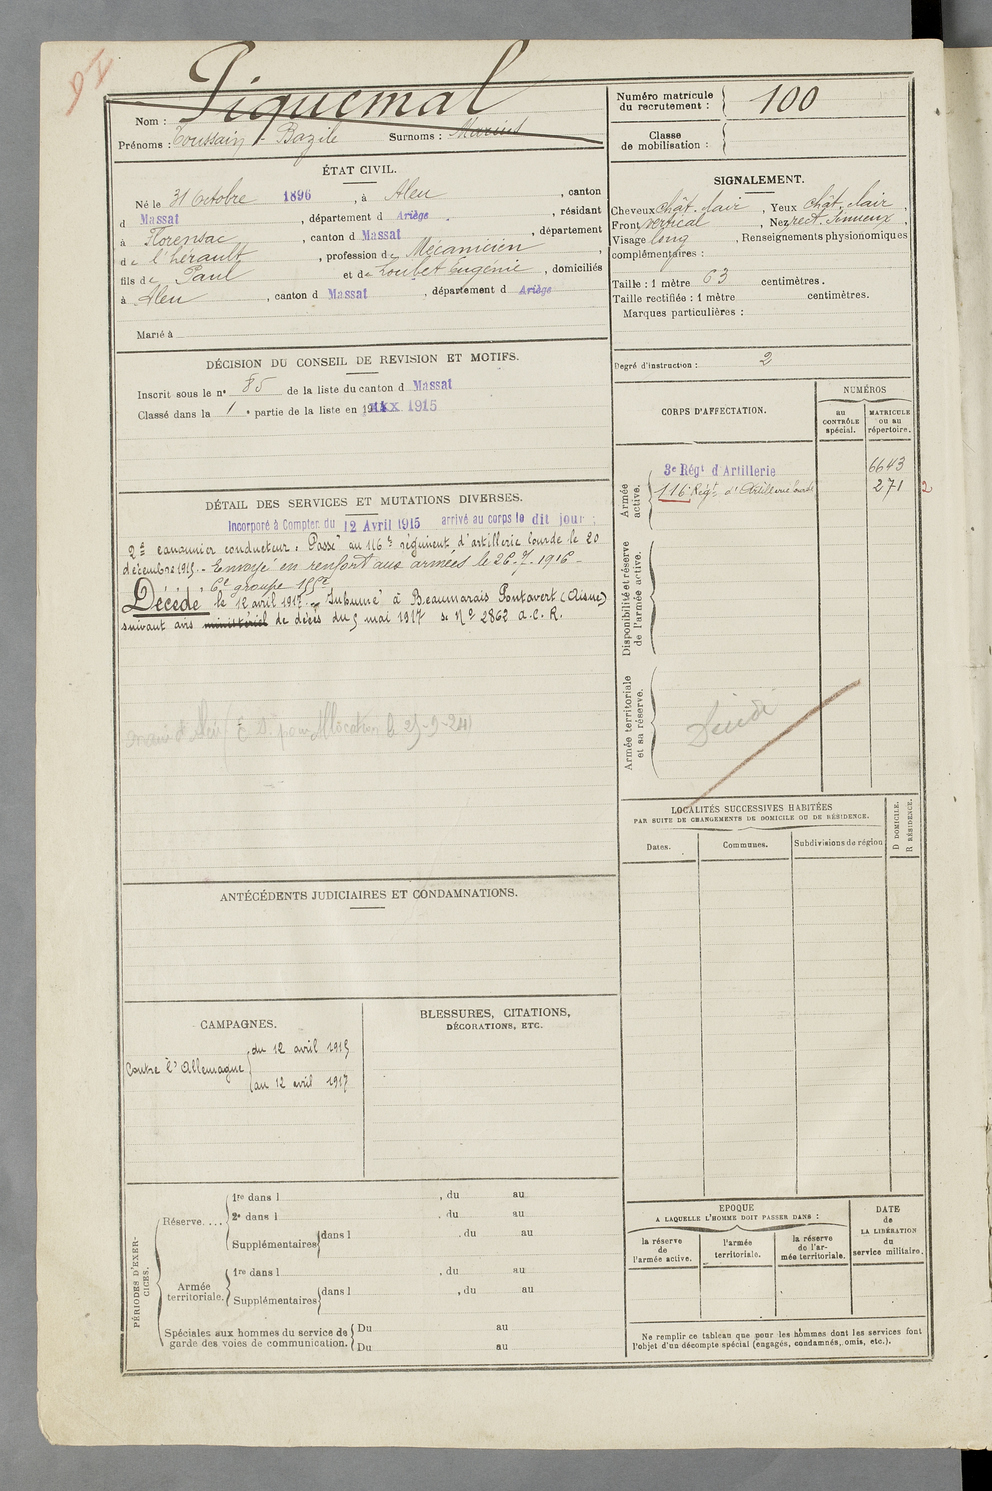 Nom : Piquemal
Prénoms : Toussain Bazile Surnoms : Marius
Numéro matricule du recrutement : 100
Classe de mobilisation :
ÉTAT CIVIL.
Né le 31 Octobre 1896, à Aleu, canton
d Massat, département d Ariège, résidant
à Florensac, canton d Massat, département
de l'hérault, profession de Mécanicien,
fils de Paul et de Loubet Eugénie, domiciliés
à Aleu, canton d Massat, département d Ariège
Marié à
SIGNALEMENT.
Cheveux chât. clair, Yeux chât. clair,
Front vertical, Nez rect. sinueux,
Visage long, Renseignements physionomiques
complémentaires :
Taille : 1 mètre 63 centimètres.
Taille rectifiée : 1 mètre centimètres.
Marques particulières :
Degré d'instruction : 2
DÉCISION DU CONSEIL DE REVISION ET MOTIFS.
Inscrit sous le n° 85 de la liste du canton d Massat
Classé dans la 1e partie de la liste en 1915
CORPS D'AFFECTATION.
NUMÉROS
au CONTRÔLE spécial.
MATRICULE OU AU répertoire.
Armée active.
3e Régt d'Artillerie 6643
116e Régt d'Artillerie lourde 271
2
Disponibilité et réserve de l'armée active.
Armée territoriale et sa réserve.
DÉTAIL DES SERVICES ET MUTATIONS DIVERSES.
Incorporé à Compter du 12 Avril 1915 arrivé au corps le dit jour ;
2e canonnier conducteur. Passé au 116e régiment d'artillerie lourde le 20
décembre 1915. - Envoyé en renfort aux armées le 26.7.1916 -
6e groupe 155c
Décédé le 12 avril 1917. Inhumé à Beaumarais Pontavert (Aisne)
suivant avis ministériel de décès du 5 mai 1917 N° 2862 A.C.R.
ANTÉCÉDENTS JUDICIAIRES ET CONDAMNATIONS.
CAMPAGNES.
Contre l'Allemagne { du 12 avril 1915
au 12 avril 1917
BLESSURES, CITATIONS, DÉCORATIONS, ETC.
LOCALITÉS SUCCESSIVES HABITÉES
PAR SUITE DE CHANGEMENTS DE DOMICILE OU DE RÉSIDENCE.
Dates. Communes. Subdivisions de région
D DOMICILE.
R RÉSIDENCE.
PÉRIODES D'EXERCICES.
Réserve.... 1re dans l , du au
2e dans l , du au
Supplémentaires dans l , du au
Armée territoriale. 1re dans l , du au
Supplémentaires dans l , du au
Spéciales aux hommes du service de garde des voies de communication. Du au
Du au
EPOQUE
A LAQUELLE L'HOMME DOIT PASSER DANS :
la réserve de l'armée active.
l'armée territoriale.
la réserve de l'armée territoriale.
DATE de LA LIBÉRATION du service militaire.
Ne remplir ce tableau que pour les hommes dont les services font
l'objet d'un décompte spécial (engagés, condamnés, omis, etc.).